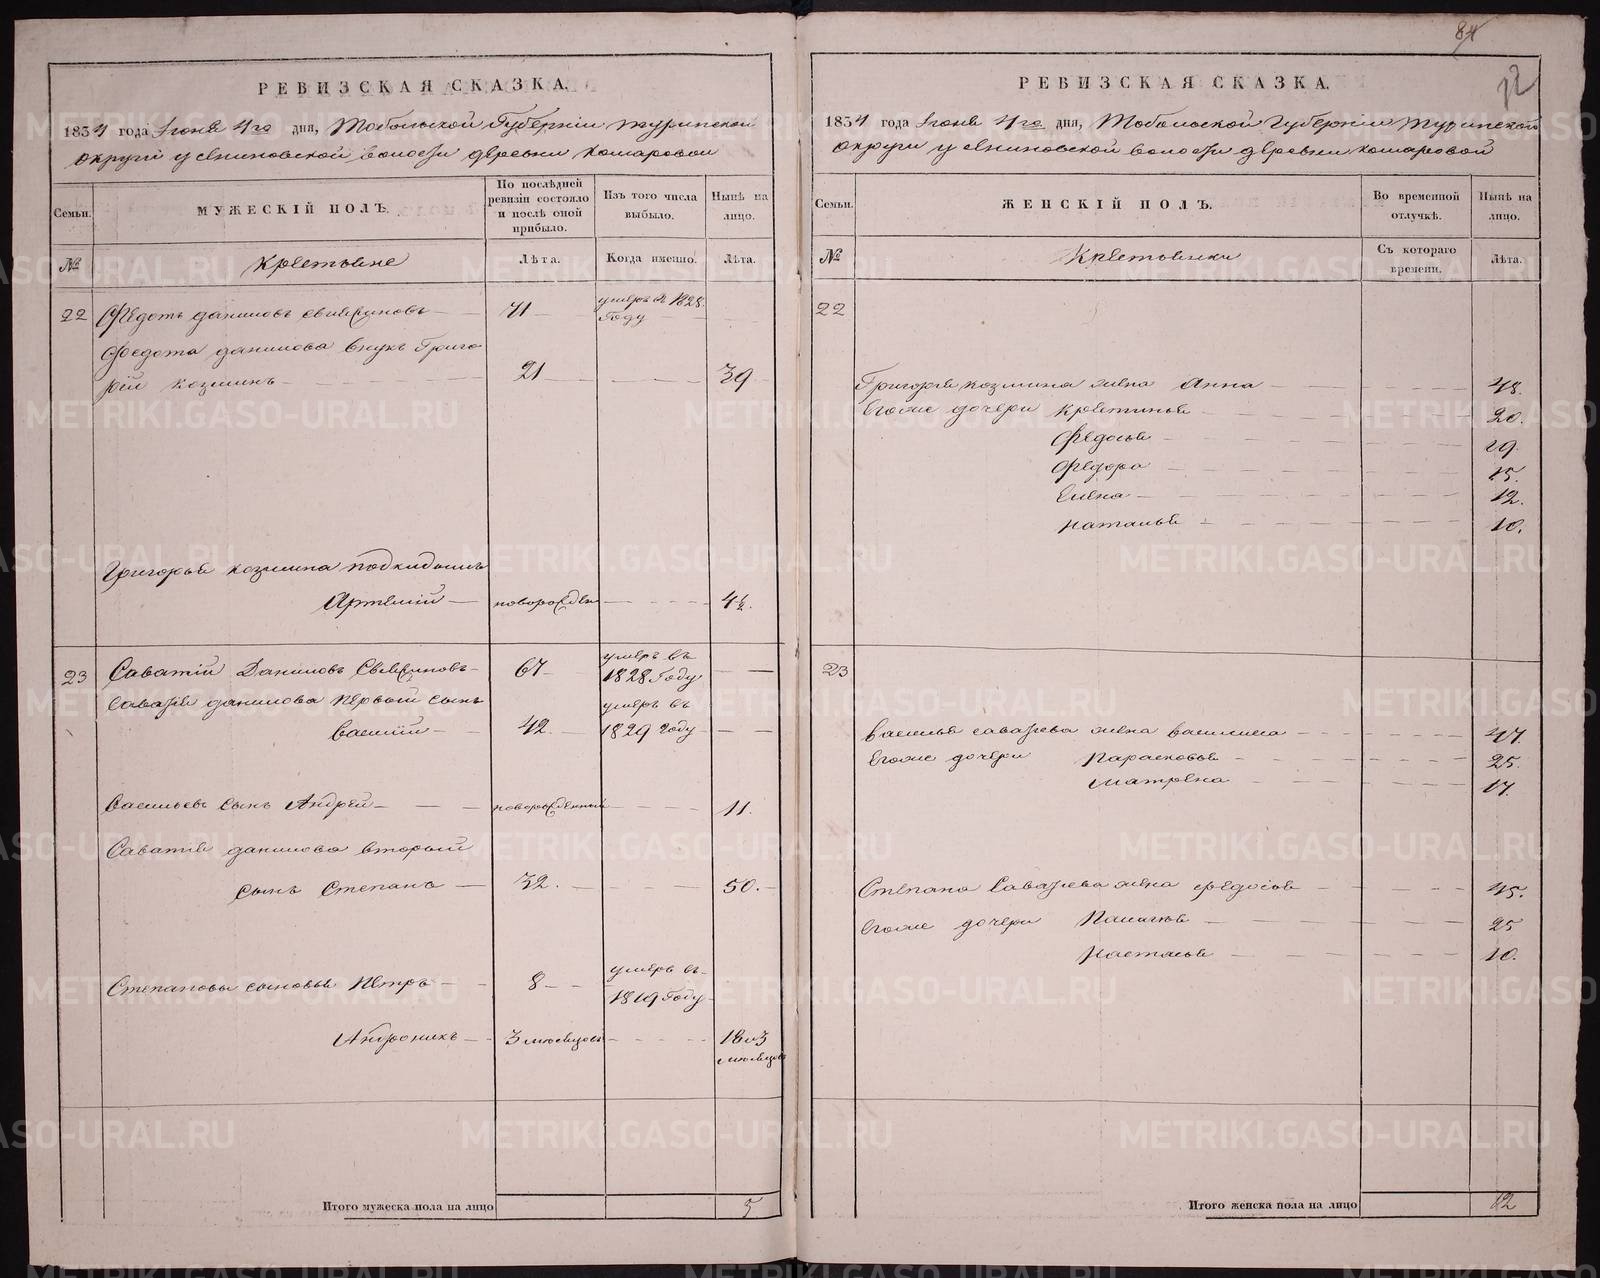 РЕВИЗСКАЯ СКАЗКА.
1834 года Iюня 4го дня, Тобольской Губернiи Туринской
округи Усениновской волости деревни Комаровой
Семьи.
МУЖЕСКIЙ ПОЛЪ.
По послѣдней ревизiи состояло и послѣ оной прибыло.
Изъ того числа выбыло.
Нынѣ на лицо.
№
Крестьяне
Лѣта.
Когда именно.
Лѣта.
22 Федотъ даниловъ свистуновъ 71 умеръ въ 1828 Году
Федота данилова внукъ Григо
рiй козминъ 21 39
Григорья козмина подкидышъ
Артемiй новорожден 4½.
23 Саватiй Даниловъ Свистуновъ 67 умеръ въ 1828 Году
Саватея данилова первой сынъ
Василiй 42. умеръ въ 1829 году
Васильевъ сынъ Андрей новорожденный 11.
Саватея данилова вторый
сынъ Степанъ 32. 50.
Степановы сыновья Петръ 8 умеръ въ 1819 Году
Андроникъ 3 месяцовъ 18 и 3 месяцовъ
Итого мужеска пола на лицо 5
84
12
РЕВИЗСКАЯ СКАЗКА.
1834 года Iюня 4го дня, Тобольской Губернiи Туринской
округи Усениновской волости деревни Комаровой
Семьи.
ЖЕНСКIЙ ПОЛЪ.
Во временной отлучкѣ.
Нынѣ на лицо.
№
Крестьянки
Съ котораго времени.
Лѣта.
22
Григорья козмина жена Анна 48.
Егоже дочери Крестинья 20.
Федосья 19.
Федора 15.
Елена 12.
Наталья 10.
23
Василья саватеева жена василиса 47.
Егоже дочери Парасковья 25.
Матрена 17.
Степана Саватеева жена федосья 45.
Егоже дочери Палагея 25
Настасья 10.
Итого женска пола на лицо 12
METRIKI.GASO-URAL.RU